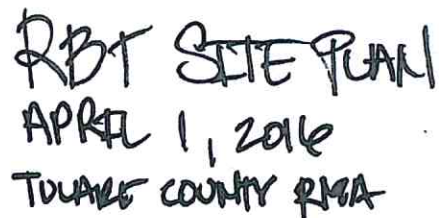 RBT SITE PLAN
APRIL 1, 2016
TULARE COUNTY RMA